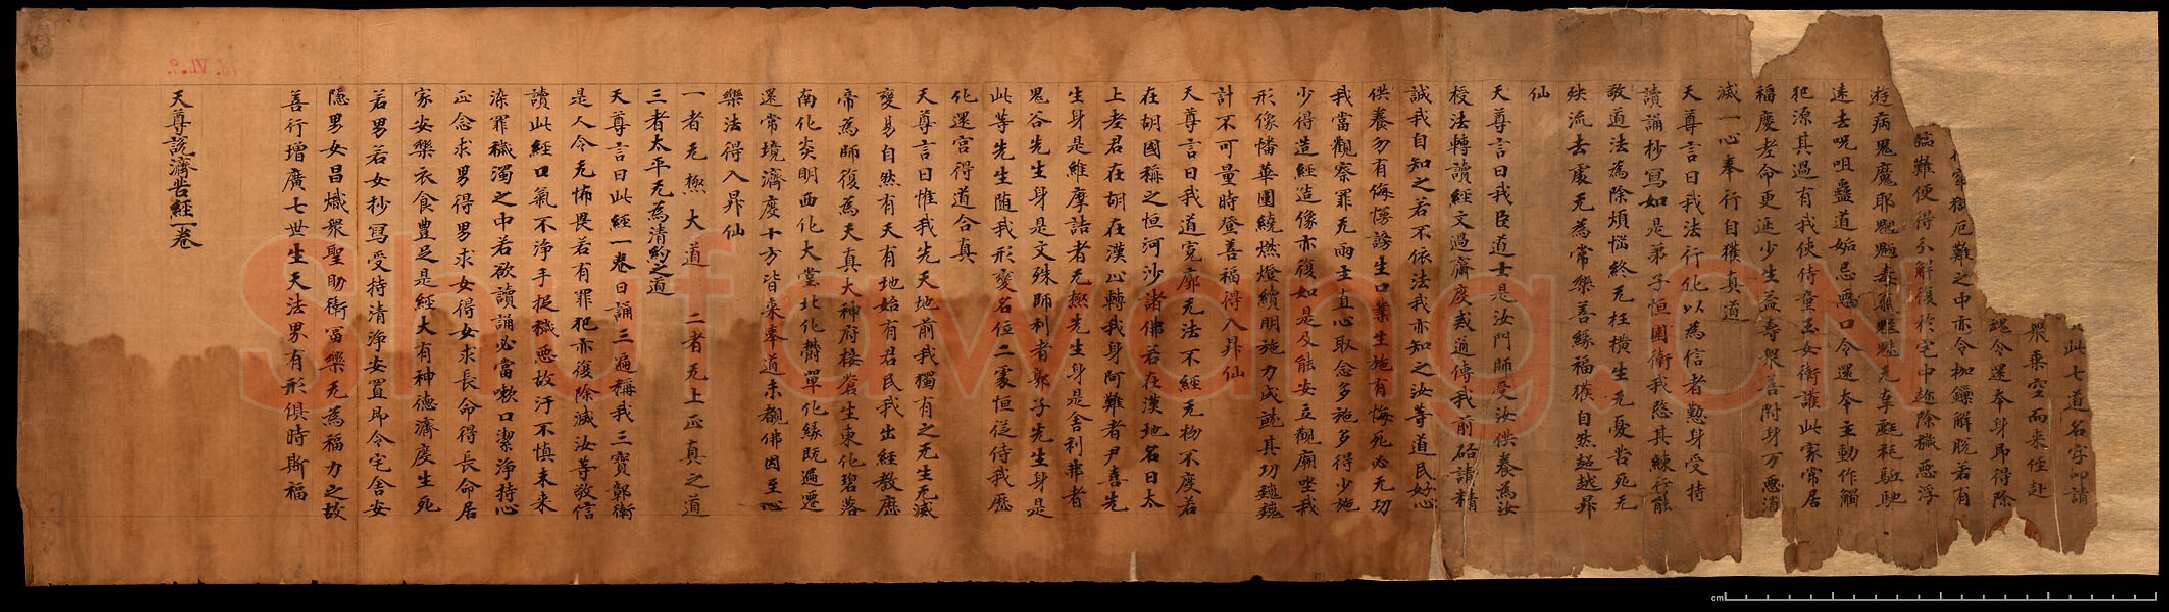 此七道名字即請
眾乘空而来往赴
魂令還本身即得除
牢獄厄難之中亦令枷鏁解脱若有
臨難便得分解復於宅中疰除穢惡浮
遊病鬼魔耶魍魎毒
遠去呪咀蠱道妬忌惡口令還本主動作觸
犯源其過有我使侍童玉女衛護此家常居
福慶老命更延少生益壽眾善附身万惡消
滅一心奉行自獲真道
天尊言曰我法行化以為信者懃身受持
讀誦抄寫如是弟子恒圍衛我愍其練行能
敬道法為除煩惱終无枉橫生无憂苦死无
殃流去處无為常樂善緣福獲自然超越昇
仙
天尊言曰我臣道士是汝門師受汝供養為汝
授法轉讀經文過齋度戒通傳我前啟請精
誠我自知之若不依法我亦知之汝等道民好心
供養勿有侮慢謗生口業生施有悔死必无功
我當觀察罪无兩主直心取念多施多得少施
少得造經造像亦復如是及能安立觀廟坐我
形像幡華圍繞燃燈續明施力成誌其功巍巍
計不可量時登善福得入昇仙
天尊言曰我道寬廓无法不經无物不度若
在胡國稱之恒河沙諸佛若在漢地名曰太
上老君在胡在漢以轉我身阿難者尹喜先
生身是維摩詰者无檕先生身是舍利弗者
鬼谷先生身是文殊師利者郭子先生身是
此等先生随我形變名位二家恒從侍我歷
化還宮得道合真
天尊言曰惟我先天地前我獨有之无生无滅
變易自然有天有地始有君民我出經教歷
帝為師復為天真大神府接蒼生東化碧落
南化炎明西化大堂北化欝單化緣既遍遷
還常境濟度十方皆来奉道未覩佛因至心
樂法得入昇仙
一者无檕大道 二者无上正真之道
三者太平无為清約之道
天尊言曰此經一卷日誦三遍稱我三寶鄣衛
是人令无怖畏若有罪犯亦復除滅汝等敬信
讀此經口氣不淨手捉穢惡故汙不慎未来
染罪穢濁之中若欲讀誦必當漱口潔淨持心
正念求男得男求女得女求長命得長命居
家安樂衣食豊足是經大有神德濟度生死
若男若女抄寫受持清淨安置即令宅舍安
隱男女昌熾眾聖助衛冨樂无為福力之故
善行增廣七世生天法界有形俱時斯福
天尊説濟苦經一卷
Shufawang.CN
cm